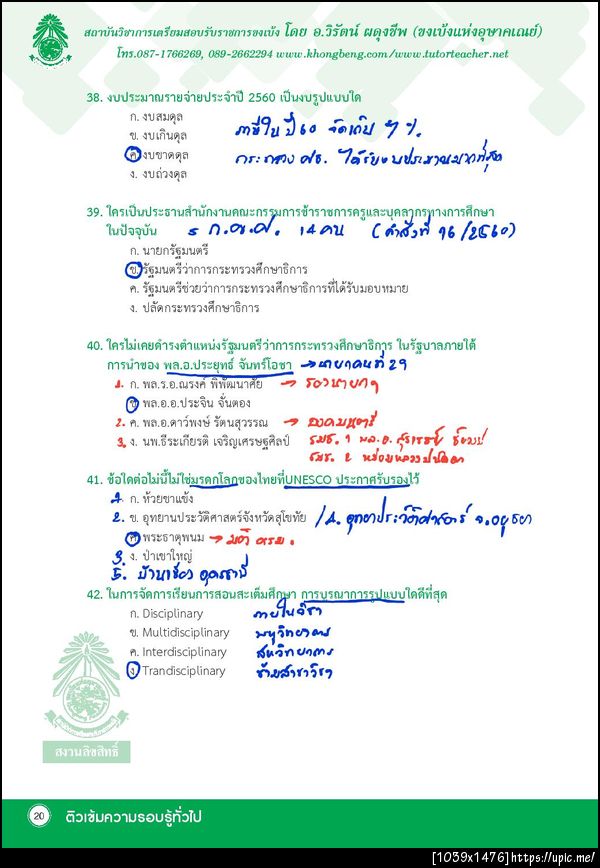 สถาบันวิชาการเตรียมสอบรับราชการขงเบ้ง โดย อ.วิรัตน์ ผดุงชีพ (ขงเบ้งแห่งอุษาคเณย์)
โทร.087-1766269, 089-2662294 www.khongbeng.com /www.tutorteacher.net
38. งบประมาณรายจ่ายประจำปี 2560 เป็นงบรูปแบบใด
ก. งบสมดุล
ข. งบเกินดุล
ภาษีในปี 60 จัดเก็บ 7 %
ค. งบขาดดุล
กระทรวง ศธ. ได้รับงบประมาณมากที่สุด
ง. งบถ่วงดุล
39. ใครเป็นประธานสำนักงานคณะกรรมการข้าราชการครูและบุคลากรทางการศึกษา
ในปัจจุบัน ก.ค.ศ. 14 คน (คำสั่งที่ 16/2560)
ก. นายกรัฐมนตรี
ข. รัฐมนตรีว่าการกระทรวงศึกษาธิการ
ค. รัฐมนตรีช่วยว่าการกระทรวงศึกษาธิการที่ได้รับมอบหมาย
ง. ปลัดกระทรวงศึกษาธิการ
40. ใครไม่เคยดำรงตำแหน่งรัฐมนตรีว่าการกระทรวงศึกษาธิการ ในรัฐบาลภายใต้
การนำของ พล.อ.ประยุทธ์ จันทร์โอชา → นายกคนที่ 29
1. ก. พล.ร.อ.ณรงค์ พิพัฒนาศัย → รองนายกฯ
ข. พล.อ.อ.ประจิน จั่นตอง
2. ค. พล.อ.ดาว์พงษ์ รัตนสุวรรณ → องคมนตรี
3. ง. นพ.ธีระเกียรติ เจริญเศรษฐศิลป์ รมช. 1 พล.อ. สุรเชษฐ์ ชัยวงศ์
รมช. 2 หม่อมหลวงปนัดดา
41. ข้อใดต่อไม่นี้ไม่ใช่มรดกโลกของไทยที่UNESCO ประกาศรับรองไว้
1. ก. ห้วยขาแข้ง
2. ข. อุทยานประวัติศาสตร์จังหวัดสุโขทัย / 4. อุทยานประวัติศาสตร์ จ.อยุธยา
ค. พระธาตุพนม → มติ ครม.
3. ง. ป่าเขาใหญ่
5. บ้านเชียง อุดรธานี
42. ในการจัดการเรียนการสอนสะเต็มศึกษา การบูรณาการรูปแบบใดดีที่สุด
ก. Disciplinary ภายในวิชา
ข. Multidisciplinary พหุวิทยาการ
ค. Interdisciplinary สหวิทยาการ
ง. Trandisciplinary ข้ามสาขาวิชา
สงวนลิขสิทธิ์
20 ติวเข้มความรอบรู้ทั่วไป
[1039x1476]https://upic.me/